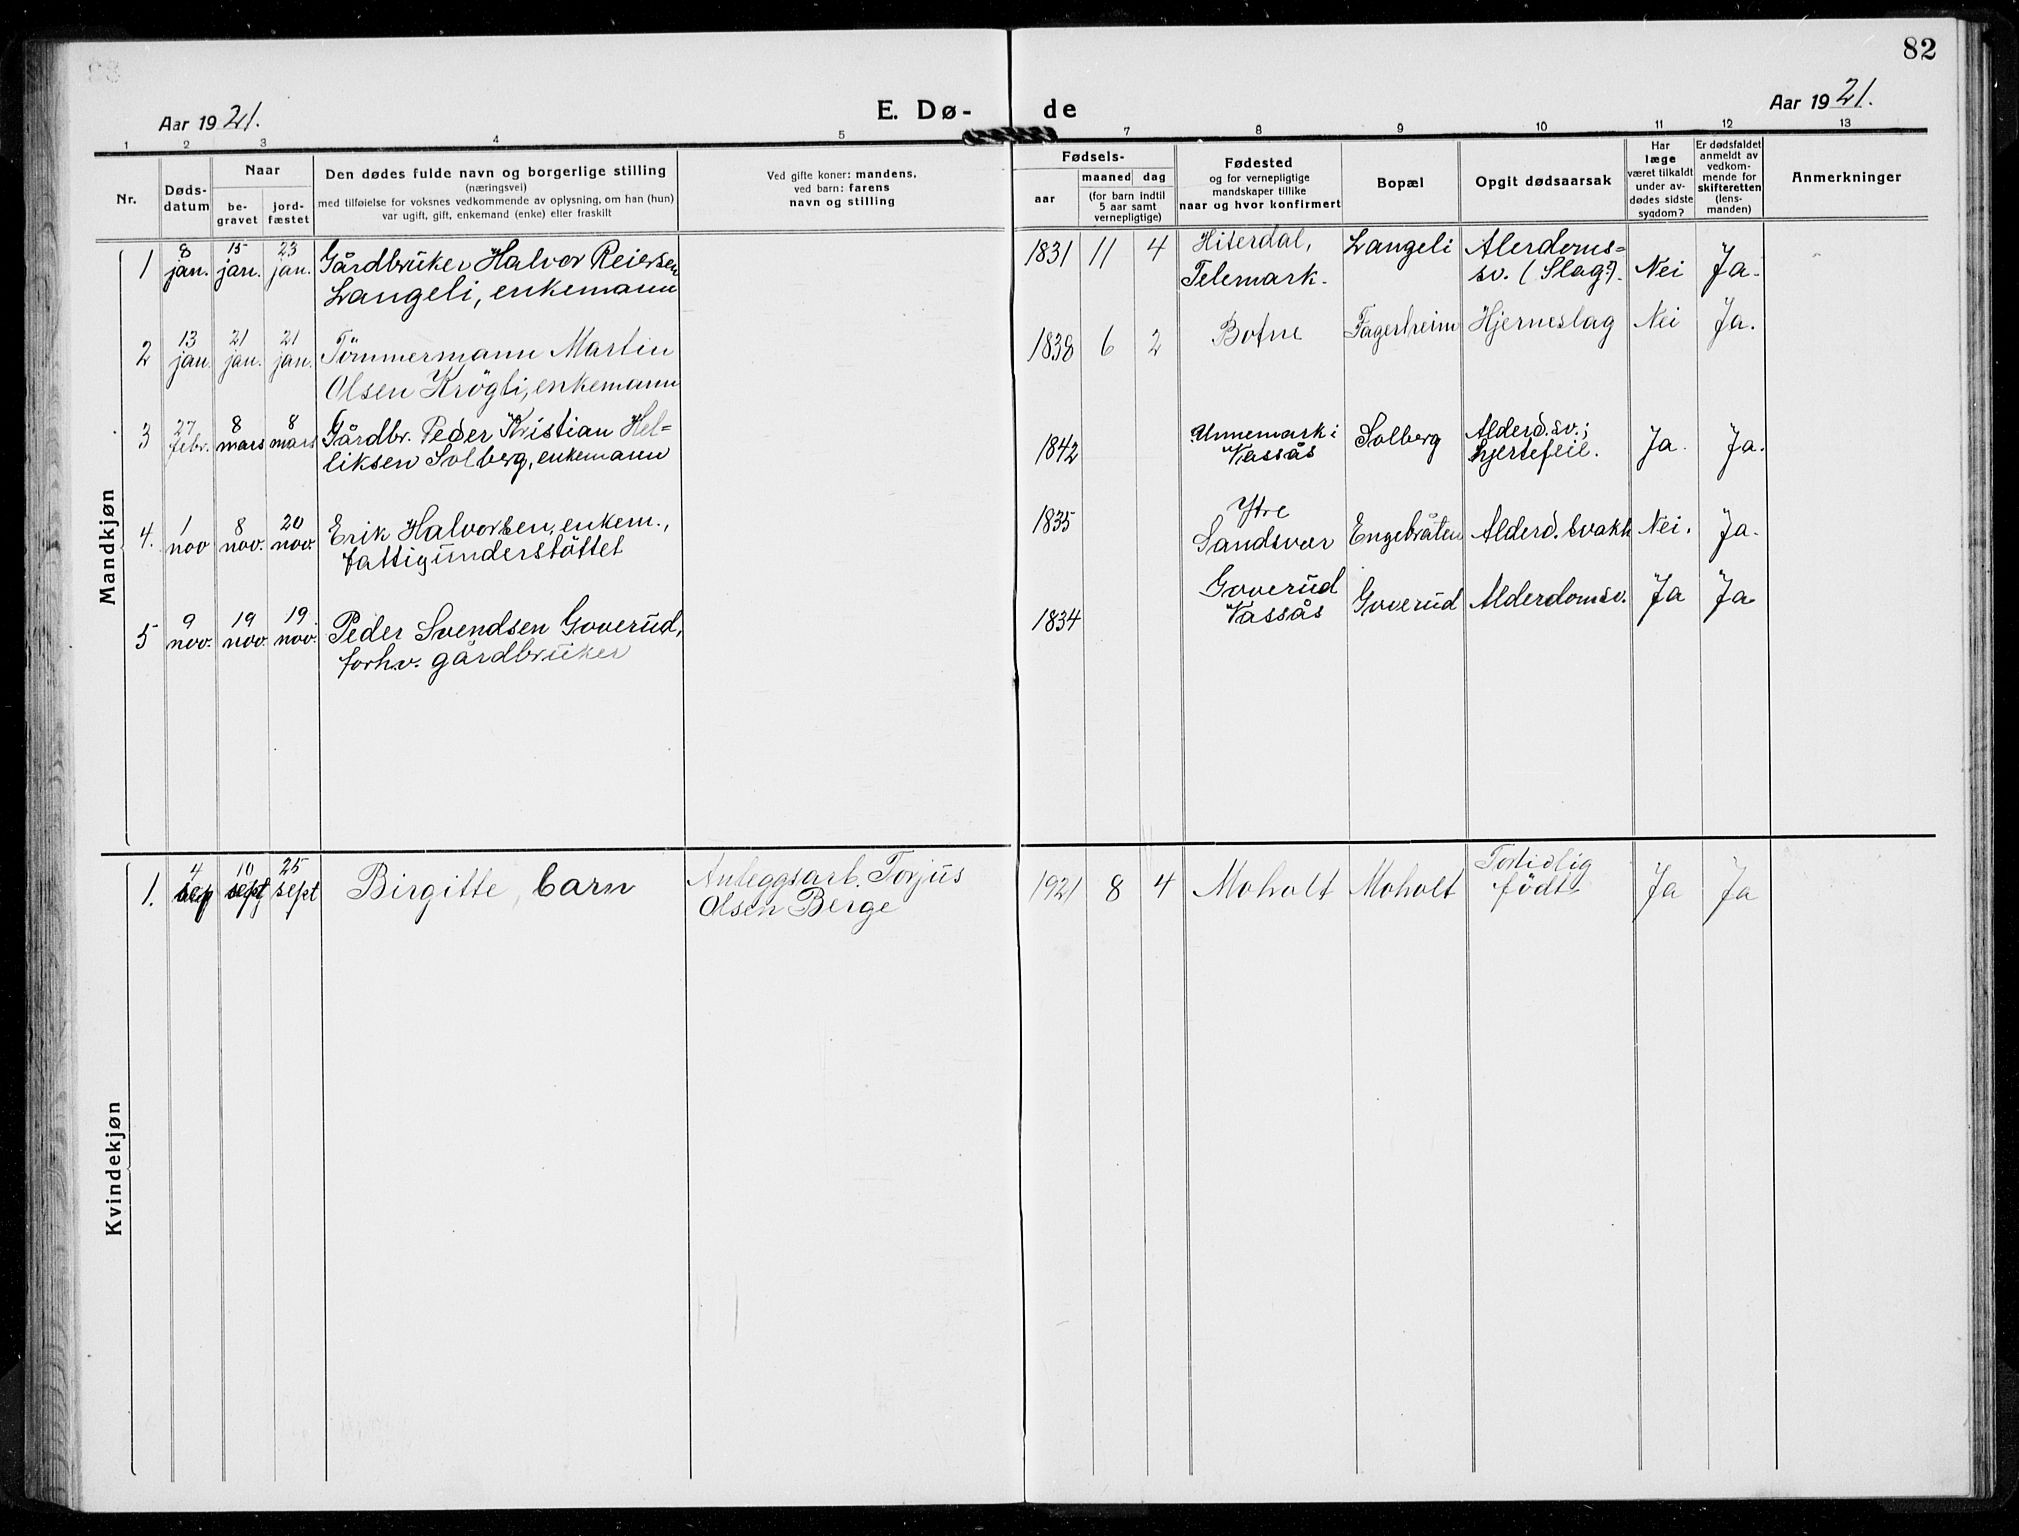 82
Aar 1921.
E. Dø-
de
Aar 1921.
1 2 3 4 5 7 8 9 10 11 12 13
Nr.
Døds-
datum
Naar
be-
gravet
jord-
fæstet
Den dødes fulde navn og borgerlige stilling
(næringsvei)
med tilføielse for voksnes vedkommende av oplysning, om han (hun)
var ugift, gift, enkemand (enke) eller fraskilt
Ved gifte koner: mandens,
ved barn: farens
navn og stilling
Fødsels-
aar
maaned dag
(for barn indtil
5 aar samt
vernepligtige)
Fødested
og for vernepligtige
mandskaper tillike
naar og hvor konfirmert
Bopæl
Opgit dødsaarsak
Har
læge
været tilkaldt
under av-
dødes sidste
sygdom?
Er dødsfaldet
anmeldt av
vedkom-
mende for
skifteretten
(lens-
manden)
Anmerkninger
Mandkjøn
8 15 23
1 jan. jan. jan. Gårdbruker Halvor Reiersen 1831 11 4 Hiterdal, Langeli Alerdoms=
Langeli, enkemann Telemark. sv. (Slag?). Nei Ja.
13 21 21
2 jan. jan. jan. Tömmermann Martin 1838 6 2 Botne Fagerheim Hjerneslag Nei Ja.
Olsen Krögli, enkemann
27 8 8
3 febr. mars mars Gårdbr. Peder Kristian Hel= 1842 Unnemark i Solberg Alderd.sv.;
liksen Solberg, enkemann Vassås hjertefeil. Ja. Ja.
1 8 20
4. nov nov. nov. Erik Halvorsen, enkem., 1835 Ytre
fattigunderstöttet Sandsvær Engebråten Alderd. svakh Nei. Ja.
9 19 19.
5 nov. nov. nov. Peder Svendsen Goverud, 1834 Goverud
forhv. gårdbruker Vassås Goverud Alderdomsv. Ja Ja
Kvindekjøn
4 10 25
1. sep sept sept Birgitte, barn Anleggsarb. Torjus 1921 8 4 Moholt Moholt Fortidlig
Olsen Berge födt. Ja Ja